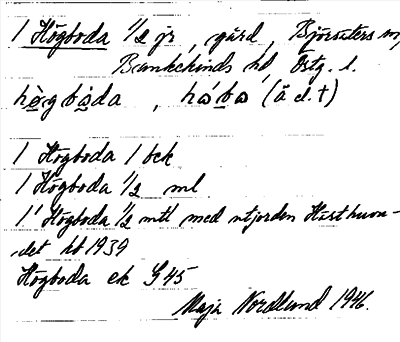 1 Högboda 1/2 jr, gård, Björsäters sn,
Bankekinds hd Östg. l.
hògbὰda, håbo (ä.d.†)
1 Högboda 1 bck
1 Högboda 1/2 ml
1' Högboda 1/2 mtl med utjorden Hästhuvu-
det hb 1939
Högboda ek G 45
Maja Nordlund 1946.